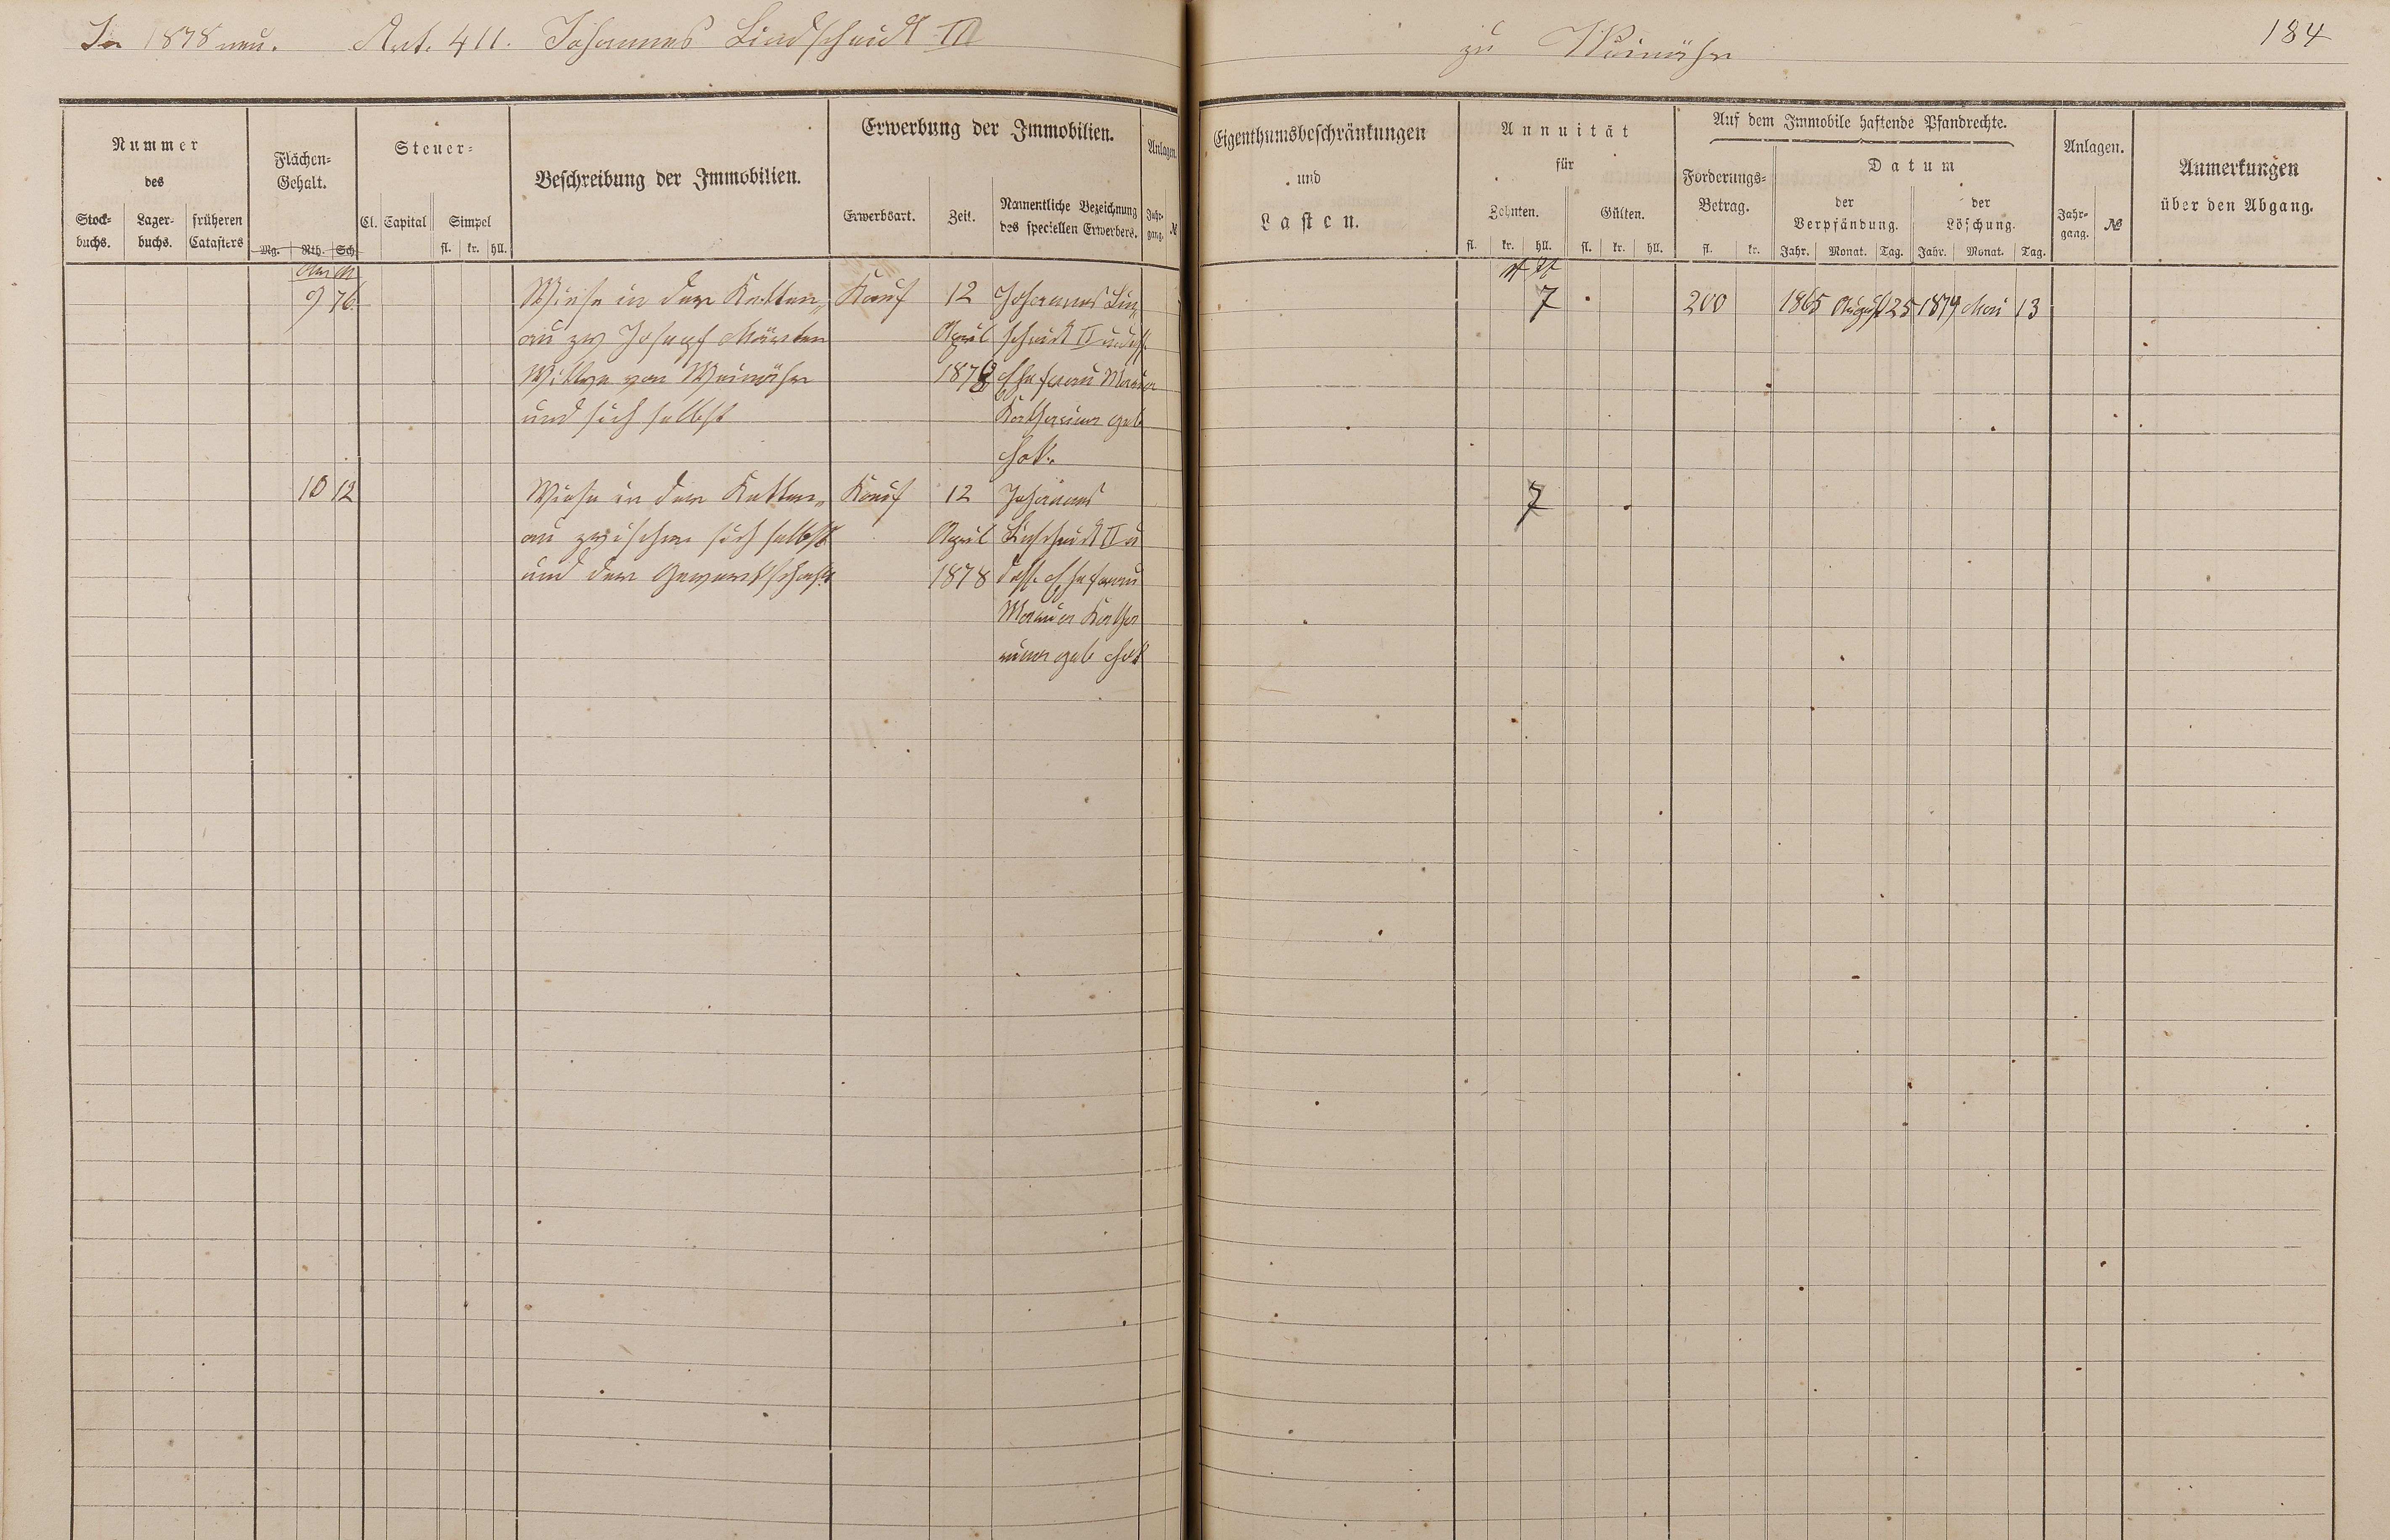 In 1878 neu. Art. 411. Johannes Lindscheidt III
zu Weinähr
184
Nummer
des
Stock-
buchs.
Lager-
buchs.
früheren
Catasters
Flächen-
Gehalt.
Mg. Rth. Sch.
Steuer-
Cl. Capital Simpel
fl. kr. hll.
Beschreibung der Immobilien.
Erwerbung der Immobilien.
Erwerbsart. Zeit.
Namentliche Bezeichnung
des speciellen Erwerbers.
Anlagen.
Jahr-
gang.
№
Eigenthumsbeschränkungen
und
Lasten.
Annuität
für
Zehnten. Gülten.
fl. kr. hll. fl. kr. hll.
Auf dem Immobile haftende Pfandrechte.
Forderungs-
Betrag.
fl. kr.
Datum
der
Verpfändung.
der
Löschung.
Jahr. Monat. Tag. Jahr. Monat. Tag.
Anlagen.
Jahr-
gang.
№
Anmerkungen
über den Abgang.
9 76 Wiese in der Katten- Kauf 12 Johannes Lin- 7 200 1865 August 25 1879 Mai 13
au zw Joseph April scheidt II u dess.
Wittwe von Weinähr 1878 Ehefrau Maria
und sich selbst Katharina geb
10 12 Wiese in der Katten- Kauf 12 Johannes 7
au zwischen sich selbst April Linscheidt II u
und der Gewerkschaft 1878 dess. Ehefrau
Maria Katha
rina geb